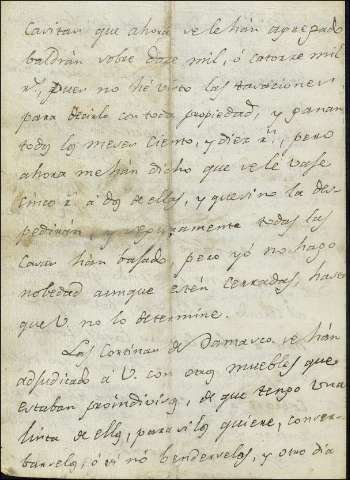 Casitas que ahora se le hán agregado
baldrán sobre doze mil, ó catorze mil
r.s, pues no hé visto las tasaciones
para decirlo con toda propiedad, y ganan
todos los meses ciento, y diez r.s, pero
ahora me hán dicho que se lé vaje
cinco r.s a dos de ellas, y que si no la des-
pedirán, y seguramente todas las
casas hán bajado, pero yó no hago
nobedad aunque estén cerradas, hasta
que V. no lo determine.
Las Cortinas de Damasco se hán
adjudicado á V. con otros muebles que
estaban proindiviso, de que tengo una
lista de ellos, para si los quiere, conser-
barselos, ó si nó bendérselos, y otro dia